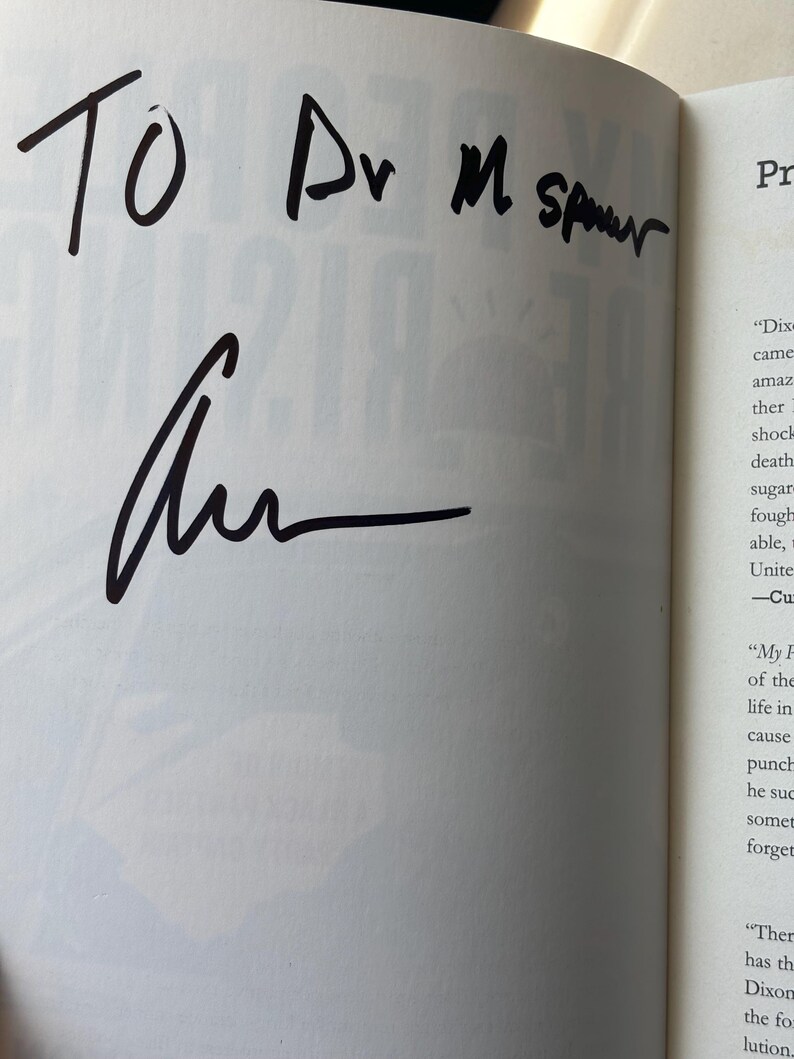 TO Dr M. Spencer
Pr
“Dix
came
amaz
ther
shock
death
sugar
fough
able,
Unite
—Cu
“My P
of the
life in
cause
punch
he suc
somet
forget
“Ther
has th
Dixon
the fo
lution,